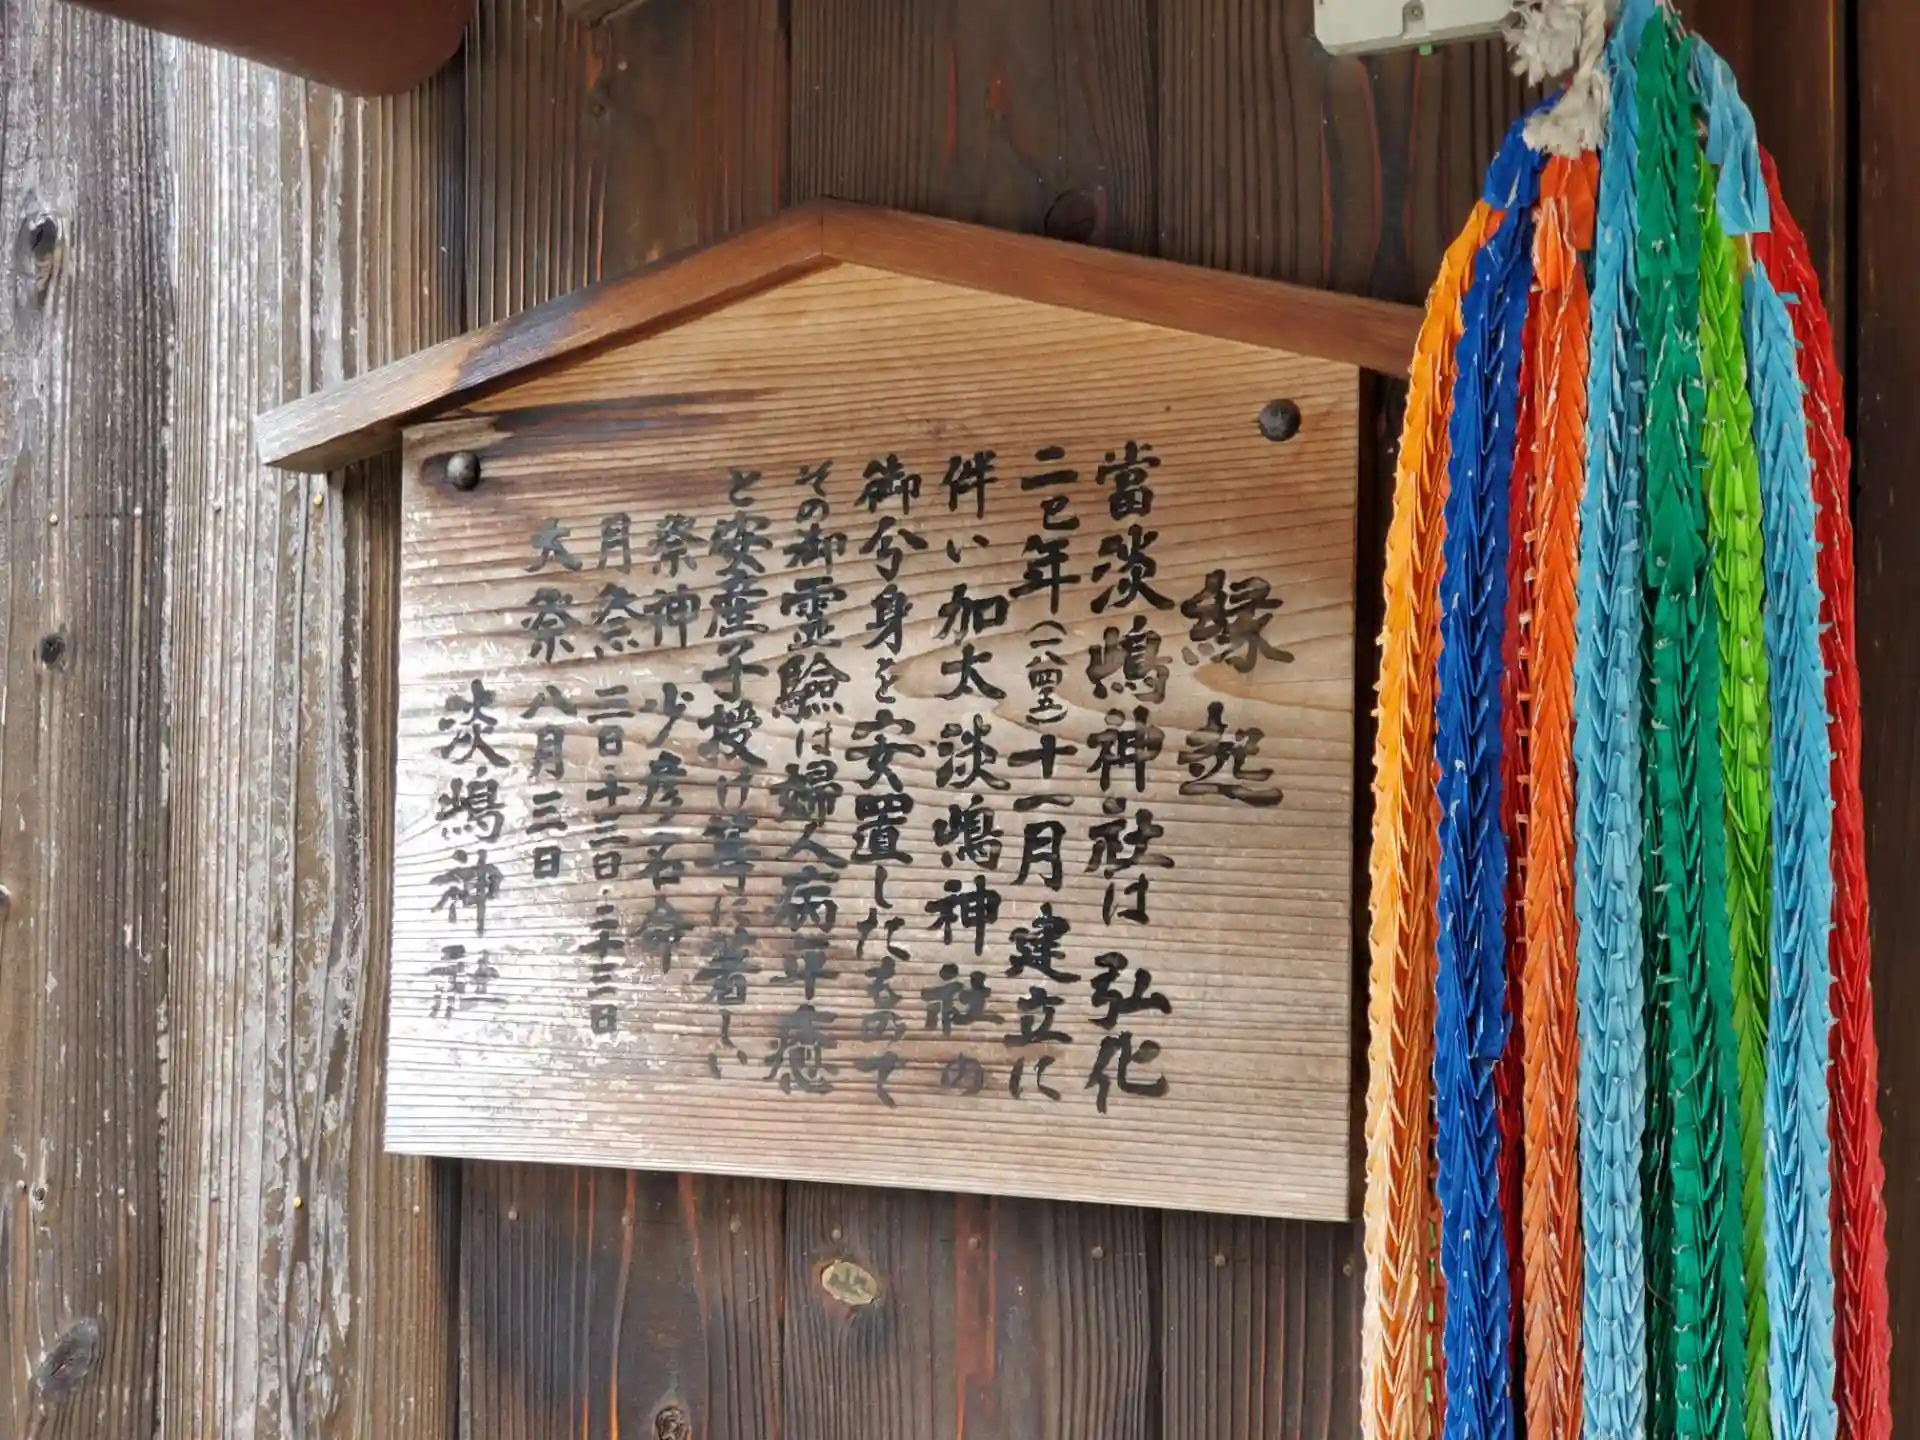 縁起
當淡嶋神社は弘化
二巳年(一八四五)十一月建立に
伴い加太淡嶋神社の
御分身を安置したものて
その御霊験は婦人病平癒
と安産子授け等に著しい
祭神 少彦名命
月祭 三日・十三日・二十三日
大祭 八月三日
淡嶋神社